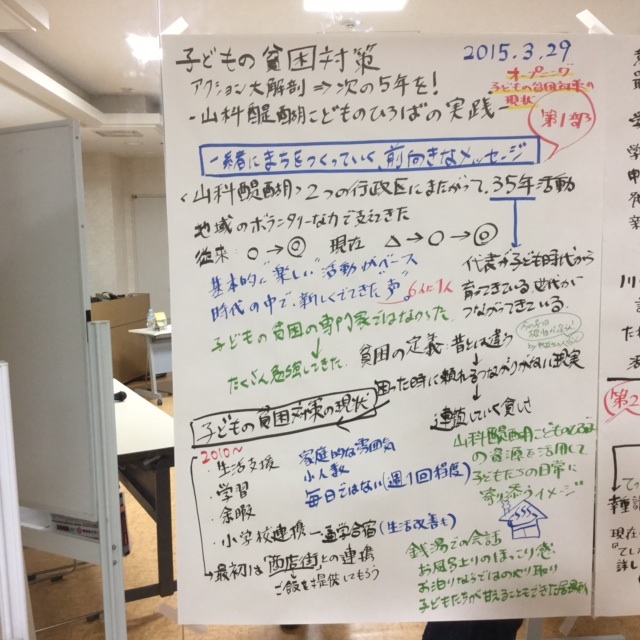 子どもの貧困対策
2015.3.29
アクション大解剖⇒次の5年を!
オープニング
子どもの貧困対策の
現状
-山科醍醐こどものひろばの実践-
第1部
一緒にまちをつくっていく、前向きなメッセージ
<山科醍醐>2つの行政区にまたがって、35年活動
地域のボランタリーな力で支えてきた
従来 ○→◎ 現在 △→○→◎
基本的に"楽しい"活動がベース
時代の中で、新しくでてきた"声"。6人に1人
代表が子ども時代から
育ってきている世代が
つながってきている。
子どもの貧困の専門家ではなかった。
たくさん勉強してきた。
貧困の定義:昔とは違う
困った時に頼れるつながりがない現実
連鎖していく貧しさ
子どもの貧困対策の現状
2010~
・生活支援
・学習
・余暇
・小学校連携―通学合宿(生活改善も)
家庭的な雰囲気
小人数
毎日ではない(週1回程度)
→最初は「商店街」との連携
ご飯を提供してもらう
山科醍醐こどものひろば
の資源を活用して
子どもたちの日常に
寄り添うイメージ
銭湯での会話
お風呂上りのほっこり感
お泊りならではのやり取り
子どもたちが甘えることもできた居場所
第2